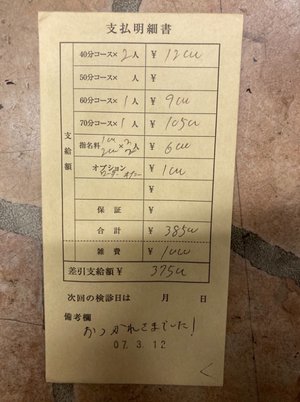 支払明細書
40分コース×2人 ¥ 12000
50分コース× 人 ¥
60分コース×1人 ¥ 9000
70分コース×1人 ¥ 10500
支給額
指名料 1000×2 2000×2人 ¥ 6000
オプション ¥ 1000
ローター オナニー
¥
保証 ¥
合計 ¥ 38500
雑費 ¥ 1000
差引支給額¥ 37500
次回の検診日は 月 日
備考欄
おつかれさまでした!
07.3.12